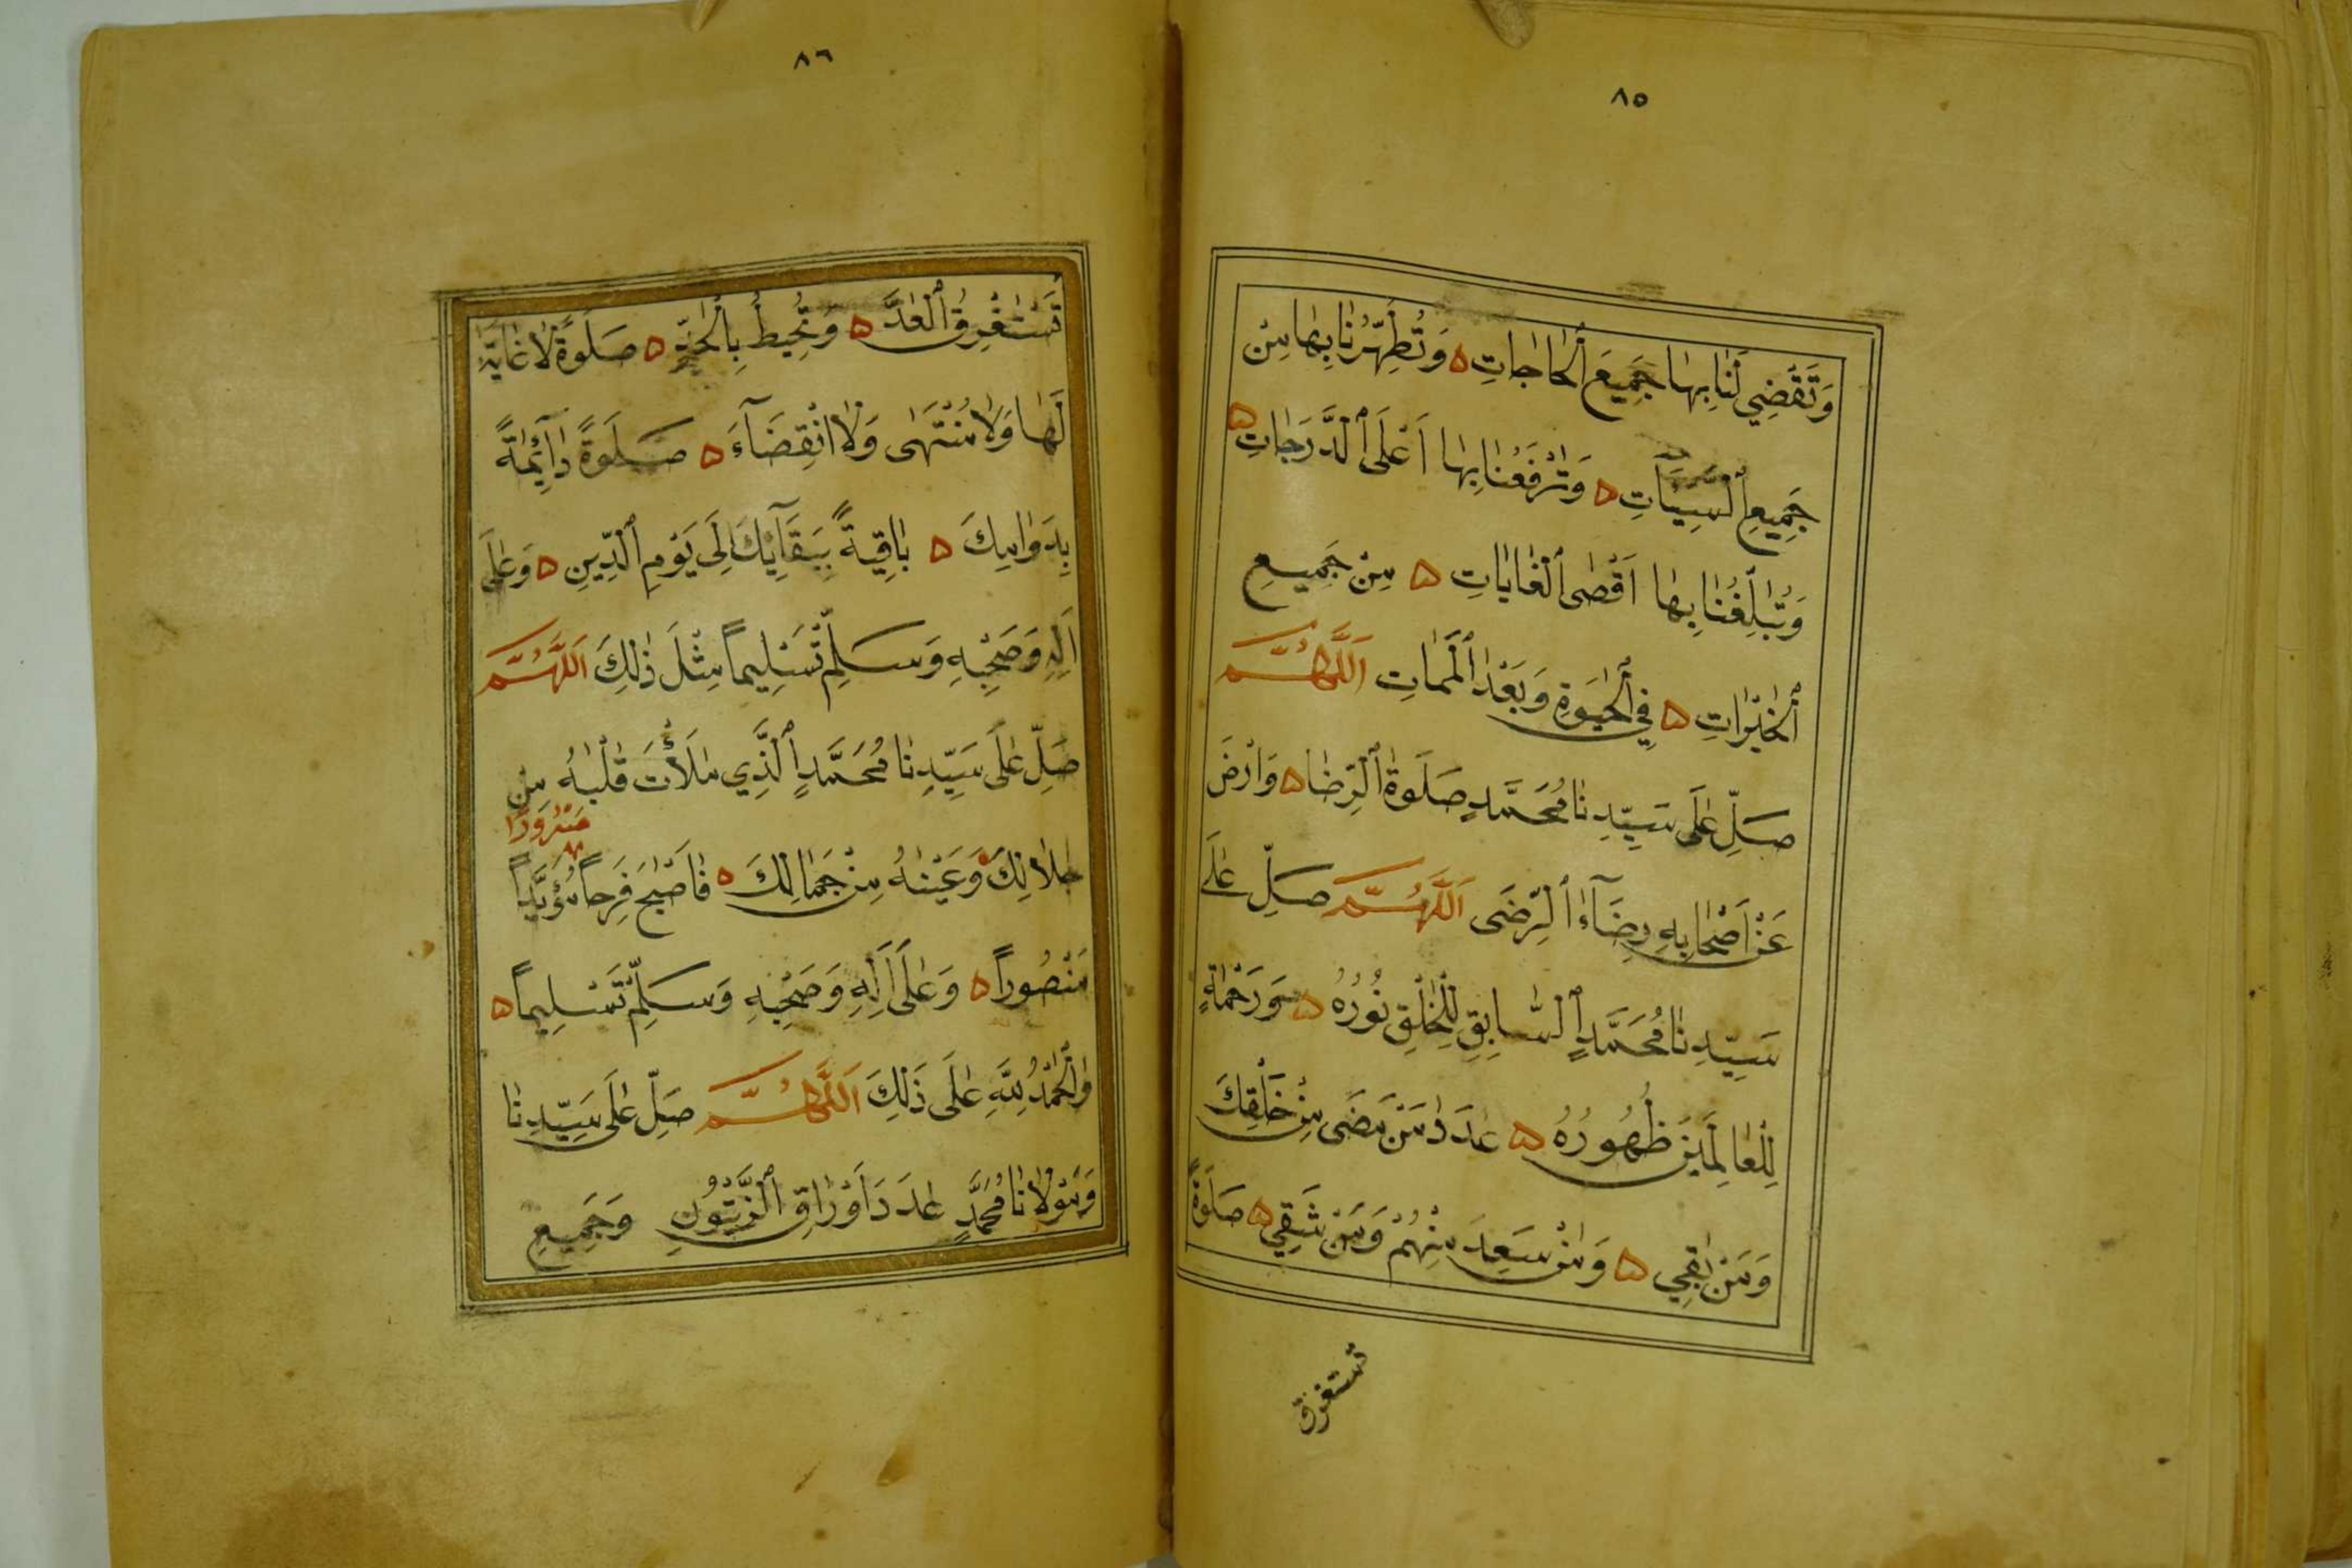 ٨٥
وَتَقْضِي لَنَا بِهَا جَمِيعَ ٱلْحَاجَاتِ ه وَتُطَهِّرُنَا بِهَا مِنْ
جَمِيعِ ٱلسَّيِّئَاتِ ه وَتَرْفَعُنَا بِهَا أَعْلَى ٱلدَّرَجَاتِ ه
وَتُبَلِّغُنَا بِهَا اَقْصَى ٱلْغَايَاتِ ه مِنْ جَمِيعِ
ٱلْخَيْرَاتِ ه فِي ٱلْحَيَوةِ وَبَعْدَ ٱلْمَمَاتِ اَللَّهُمَّ
صَلِّ عَلَى سَيِّدِنَا مُحَمَّدٍ صَلَوةَ ٱلرِّضَا ه وَارْضَ
عَنْ اَصْحَابِهِ رِضَآءَ ٱلرِّضَى اَللَّهُمَّ صَلِّ عَلَى
سَيِّدِنَا مُحَمَّدٍ ٱلسَّابِقِ لِلْخَلْقِ نُورُهُ ه وَرَحْمَةٌ
لِلْعَالَمِينَ ظُهُورُهُ ه عَدَدَ مَنْ مَضَى مِنْ خَلْقِكَ
وَمَنْ بَقِيَ ه وَمَنْ سَعِدَ مِنْهُمْ وَمَنْ شَقِيَ ه صَلَوةً
تستغرق
٨٦
تَسْتَغْرِقُ ٱلْعَدَّ ه وَتُحِيطُ بِالْحَدِّ ه صَلَوةً لَا غَايَةَ
لَهَا وَلَا مُنْتَهَى وَلَا انْقِضَآءَ ه صَلَوةً دَآئِمَةً
بِدَوَامِكَ ه بَاقِيَةً بِبَقَآئِكَ اِلَى يَوْمِ ٱلدِّينِ ه وَعَلَى
اَلِهِ وَصَحْبِهِ وَسَلِّمْ تَسْلِيماً مِثْلَ ذَلِكَ اَللَّهُمَّ
صَلِّ عَلَى سَيِّدِنَا مُحَمَّدٍ ٱلَّذِي مَلَأْتَ قَلْبَهُ مِنْ
مَسْرُورًا
جَلَالِكَ ه وَعَيْنَهُ مِنْ جَمَالِكَ ه فَاَصْبَحَ فَرِحاً مُؤَيَّداً
مَنْصُوراً ه وَعَلَى اَلِهِ وَصَحْبِهِ وَسَلِّمْ تَسْلِيماً ه
وَٱلْحَمْدُ لِلَّهِ عَلَى ذَلِكَ اَللَّهُمَّ صَلِّ عَلَى سَيِّدِنَا
وَمَوْلَانَا مُحَمَّدٍ عَدَدَ اَوْرَاقِ ٱلزَّيْتُونِ وَجَمِيعِ